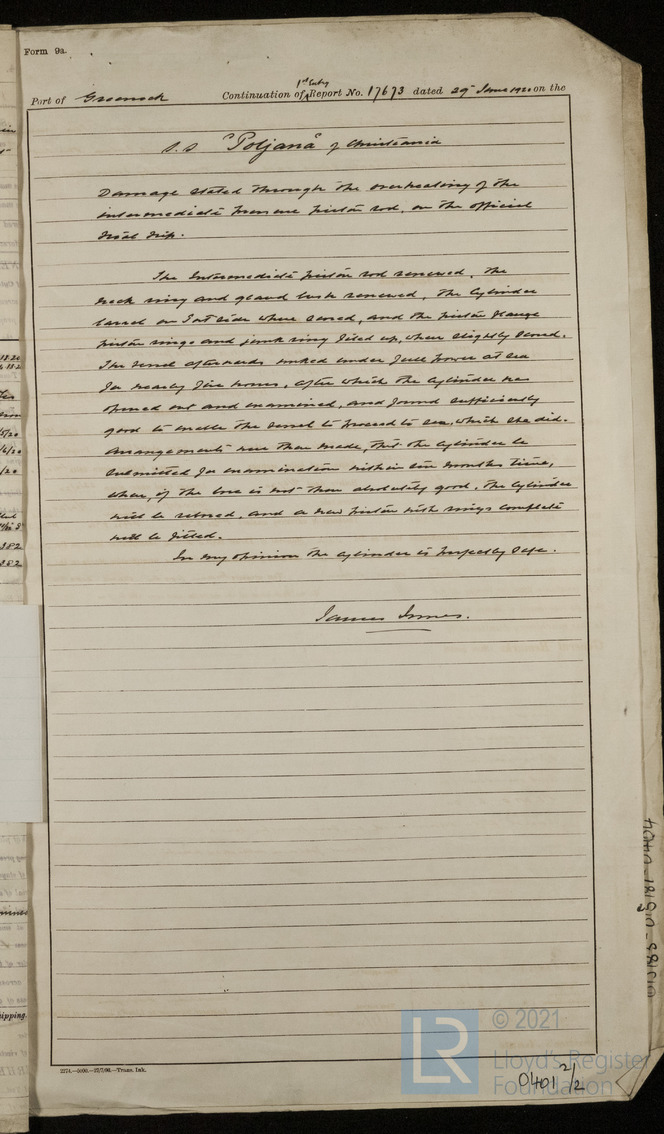 Form 9a.
1st Entry
Port of Greenock Continuation of Report No. 17673 dated 29th June 1920 on the
S.S "Poljana" of Christiania
Damage stated through the overheating of the
intermediate pressure piston rod, on the official
trial trip.
The Intermediate piston rod renewed, the
neck ring and gland bush renewed, the cylinder
barrel on Port side where scored, and the piston flange
piston rings and junk ring filed up, where slightly scored.
The vessel afterwards worked under full power at sea
for nearly five hours, after which the cylinder was
opened out and examined, and found sufficiently
good to enable the vessel to proceed to sea, which she did.
Arrangements were then made, that the cylinder be
submitted for examination within six months time,
when, if the bore is not then absolutely good, the cylinder
will be rebored, and a new piston with rings complete
will be fitted.
In my opinion the cylinder is perfectly safe.
James Innes.
2274.—5000.—27/7/08.—Trans. Ink.
© 2021
LR
Lloyd's Register
Foundation
0401 2/2
ipping.
382
382